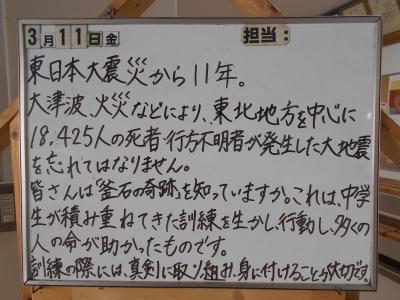 3月11日金 担当:
東日本大震災から11年。
大津波、火災などにより、東北地方を中心に
18,425人の死者・行方不明者が発生した大地震
を忘れてはなりません。
皆さんは「釜石の奇跡」を知っていますか。これは、中学
生が積み重ねてきた訓練を生かし、行動し、多くの
人の命が助かったものです。
訓練の際には、真剣に取り組み、身に付けることが大切です。